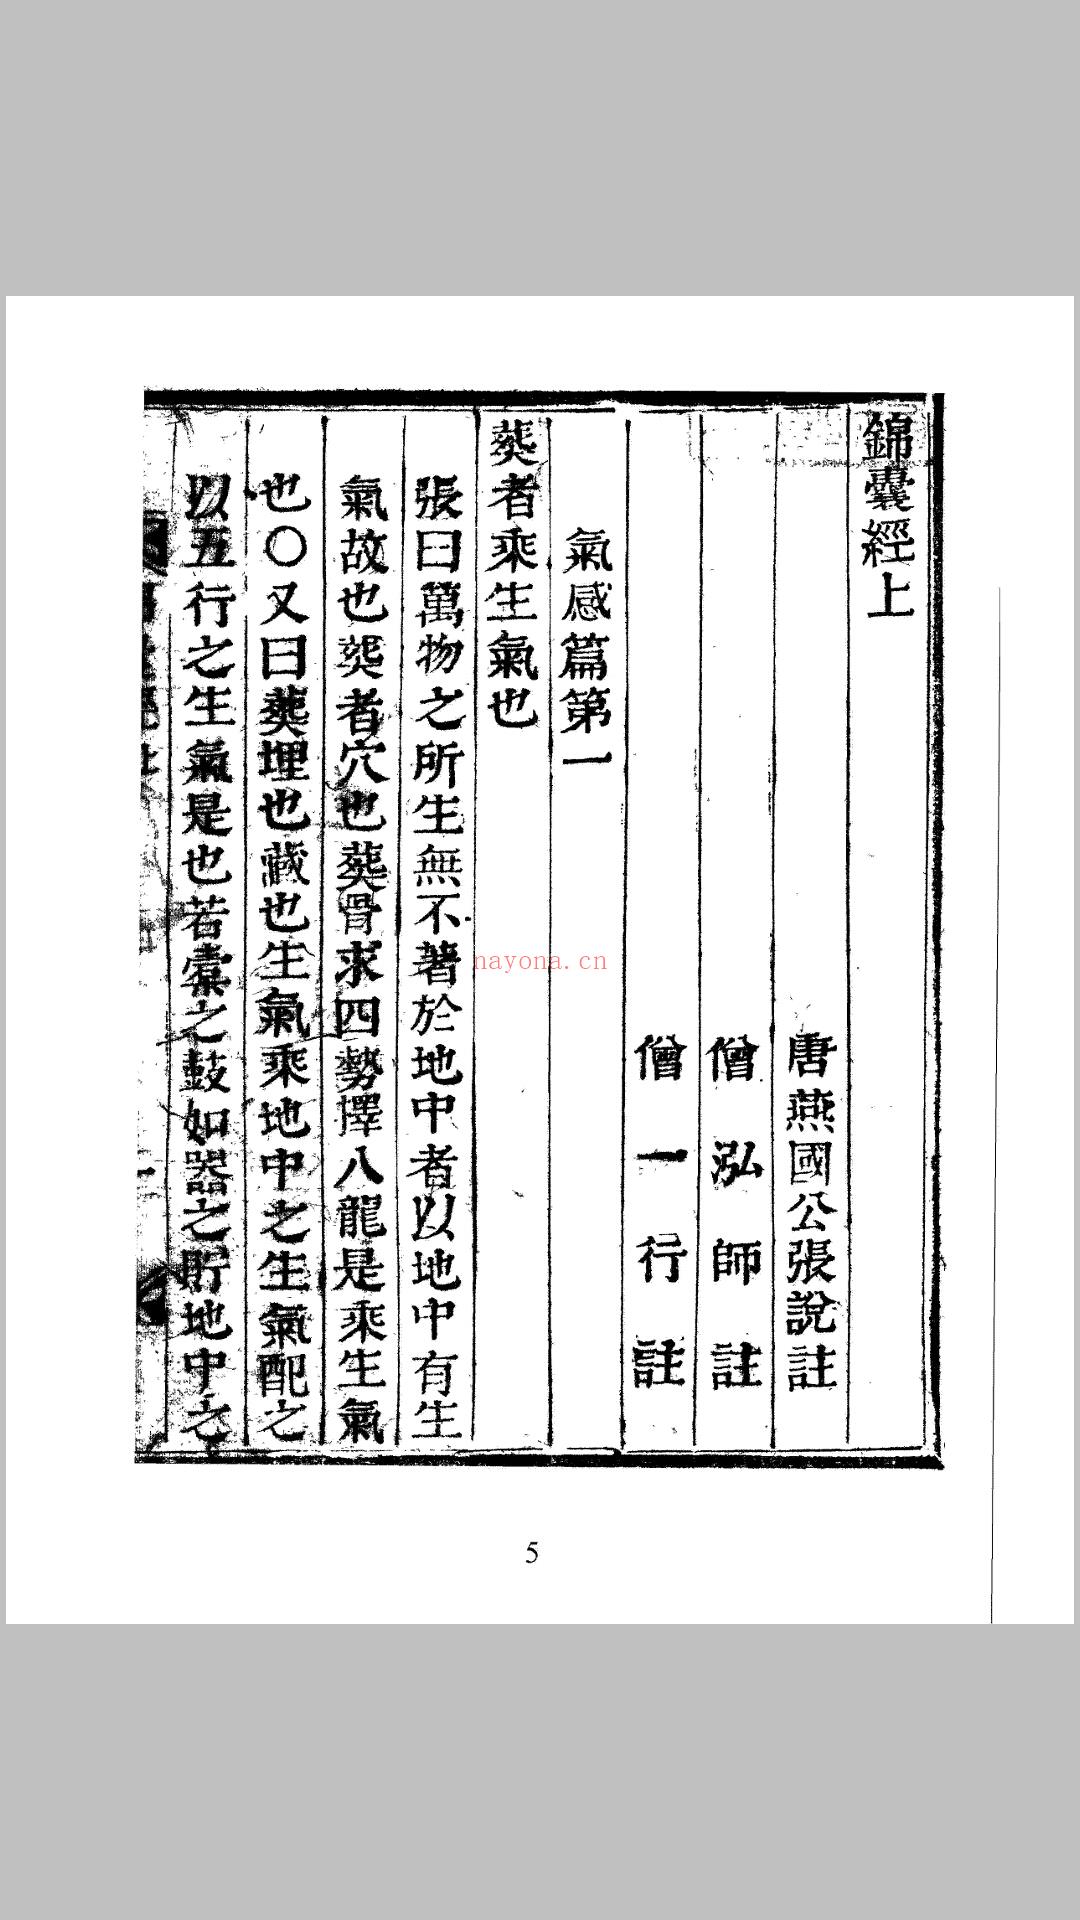 錦囊經上
唐燕國公張說註
僧泓師註
僧一行註
氣感篇第一
葬者乘生氣也
張曰萬物之所生無不著於地中者以地中有生
氣故也葬者穴也葬骨求四勢擇八龍是乘生氣
也〇又曰葬埋也藏也生氣乘地中之生氣配之
以五行之生氣是也若橐之鼓如器之貯地中之
nayona.cn
5